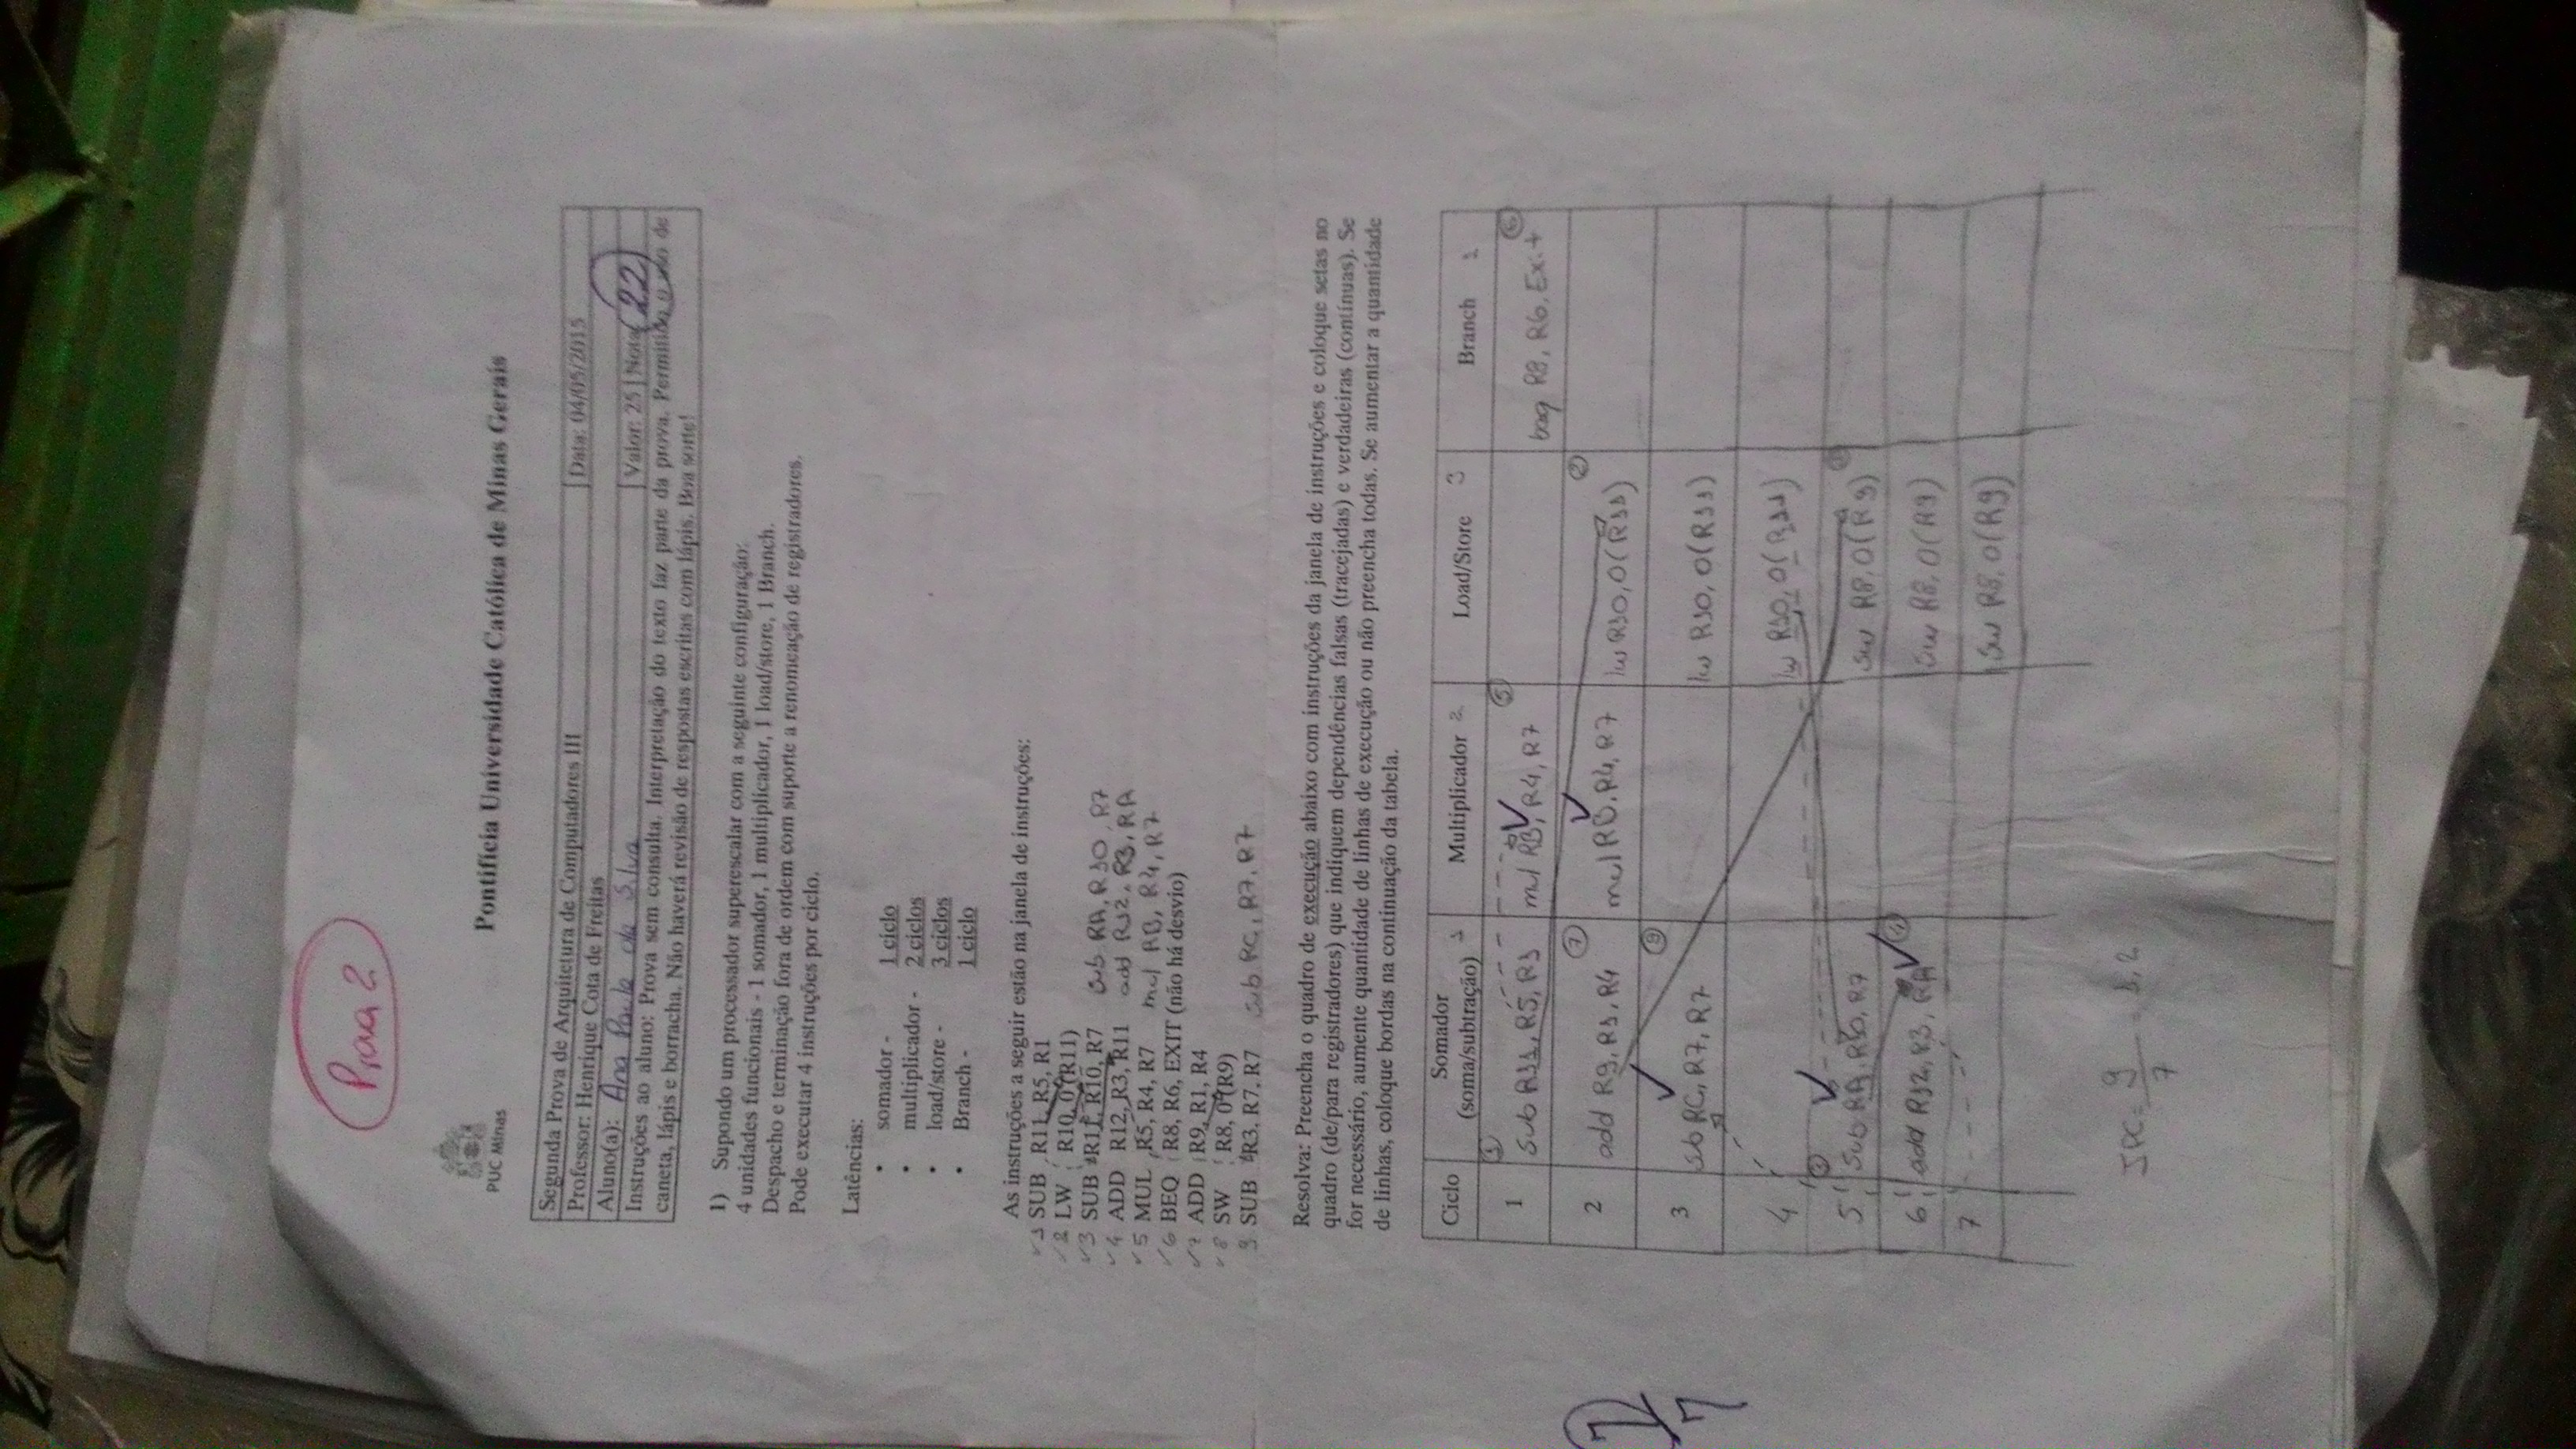 Prova 2
PUC Minas
Pontifícia Universidade Católica de Minas Gerais
Segunda Prova de Arquitetura de Computadores III
Data: 04/05/2015
Professor: Henrique Cota de Freitas
Aluno(a): Ana Paula da Silva
Valor: 25 Nota 22
Instruções ao aluno: Prova sem consulta. Interpretação do texto faz parte da prova. Permitido o uso de
caneta, lápis e borracha. Não haverá revisão de respostas escritas com lápis. Boa sorte!
1) Supondo um processador superescalar com a seguinte configuração:
4 unidades funcionais - 1 somador, 1 multiplicador, 1 load/store, 1 Branch.
Despacho e terminação fora de ordem com suporte a renomeação de registradores.
Pode executar 4 instruções por ciclo.
Latências:
• somador - 1 ciclo
• multiplicador - 2 ciclos
• load/store - 3 ciclos
• Branch - 1 ciclo
As instruções a seguir estão na janela de instruções:
1 SUB R11, R5, R1
2 LW R10, 0(R11)
3 SUB R11, R10, R7 sub RA, R10, R7
4 ADD R12, R3, R11 add R12, R3, RA
5 MUL R5, R4, R7 mul RB, R4, R7
6 BEQ R8, R6, EXIT (não há desvio)
7 ADD R9, R1, R4
8 SW R8, 0(R9)
9 SUB R3, R7, R7 sub RC, R7, R7
Resolva: Preencha o quadro de execução abaixo com instruções da janela de instruções e coloque setas no
quadro (de/para registradores) que indiquem dependências falsas (tracejadas) e verdadeiras (contínuas). Se
for necessário, aumente quantidade de linhas de execução ou não preencha todas. Se aumentar a quantidade
de linhas, coloque bordas na continuação da tabela.
Ciclo
Somador
(soma/subtração) 1
Multiplicador 2
Load/Store 3
Branch 1
1
1 sub R11, R5, R1
5 mul RB, R4, R7
6 beq R8, R6, Exit
2
7 add R9, R1, R4
mul RB, R4, R7
2 lw R10, 0(R11)
3
9 sub RC, R7, R7
lw R10, 0(R11)
4
lw R10, 0(R11)
5
3 sub RA, R10, R7
sw R8, 0(R9)
6
4 add R12, R3, RA
sw R8, 0(R9)
7
sw R8, 0(R9)
7
7
IPC = 9
7
= 1,2